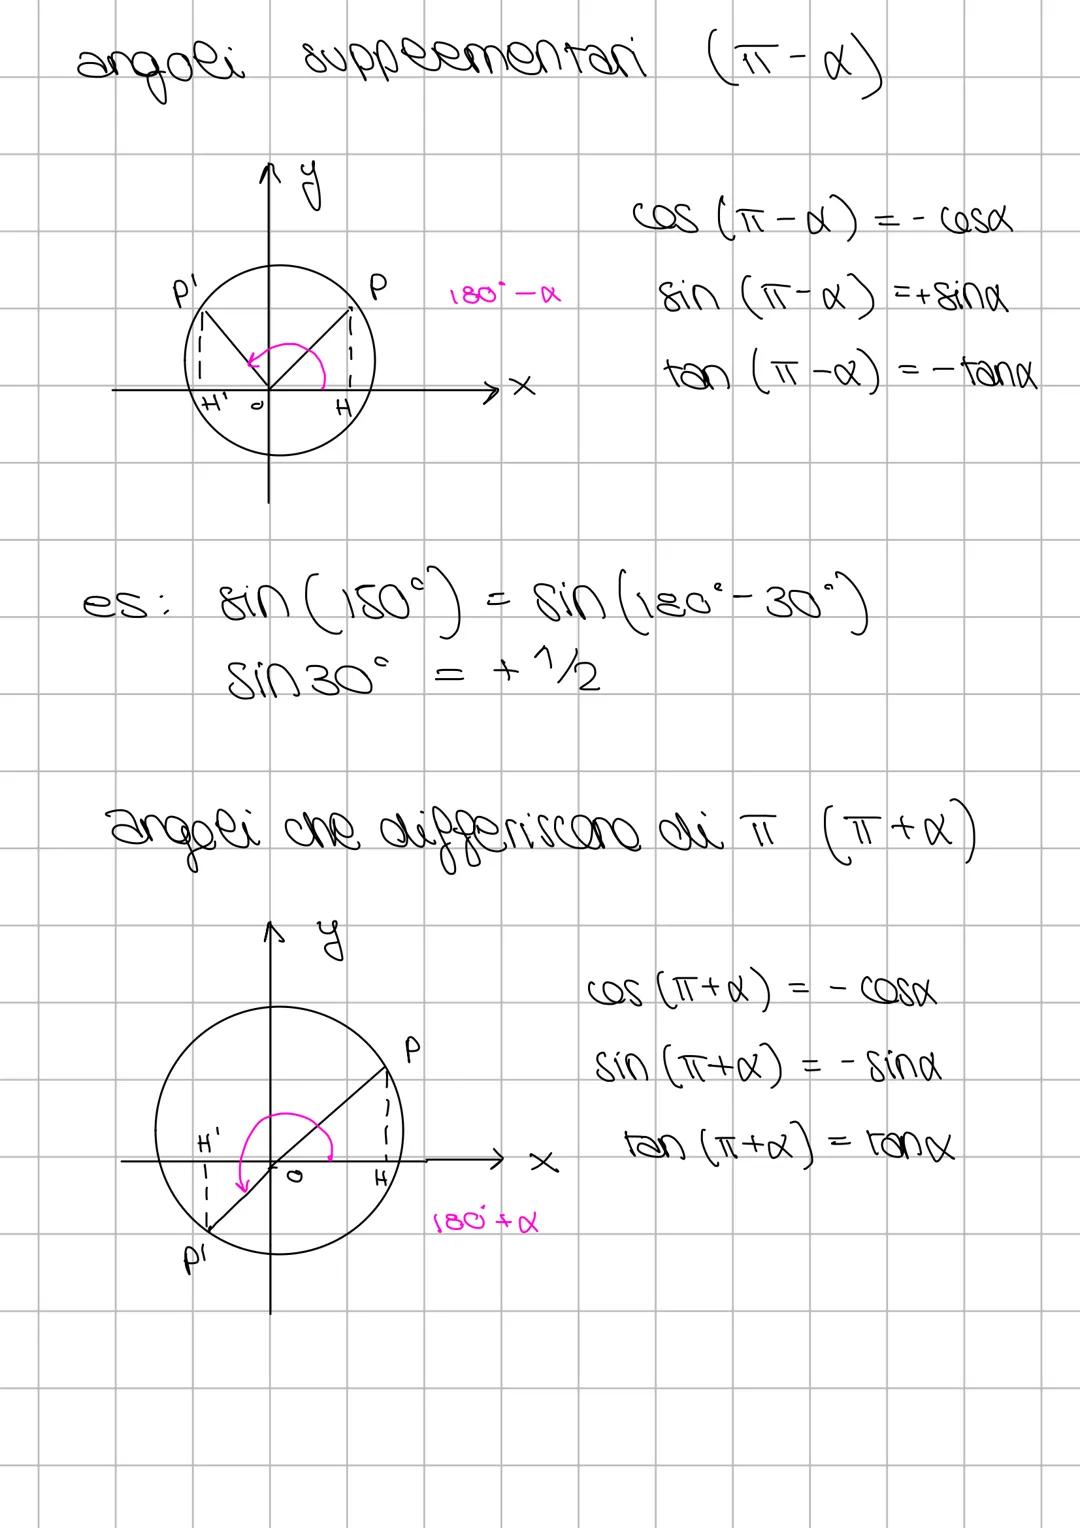 angoli supplementari (π-α)
y
P'
P
180°-α
H'
O
H
x
cos (π-α) = - cosα
sin (π-α) =+sinα
tan (π-α) = - tanα
es: sin(150°) = sin(180°-30°)
sin30° = + 1/2
angoli che differiscono di π (π+α)
y
P
H'
O
H
x
P'
180°+α
cos (π+α) = - cosα
sin (π+α) = - sinα
tan (π+α) = tanα